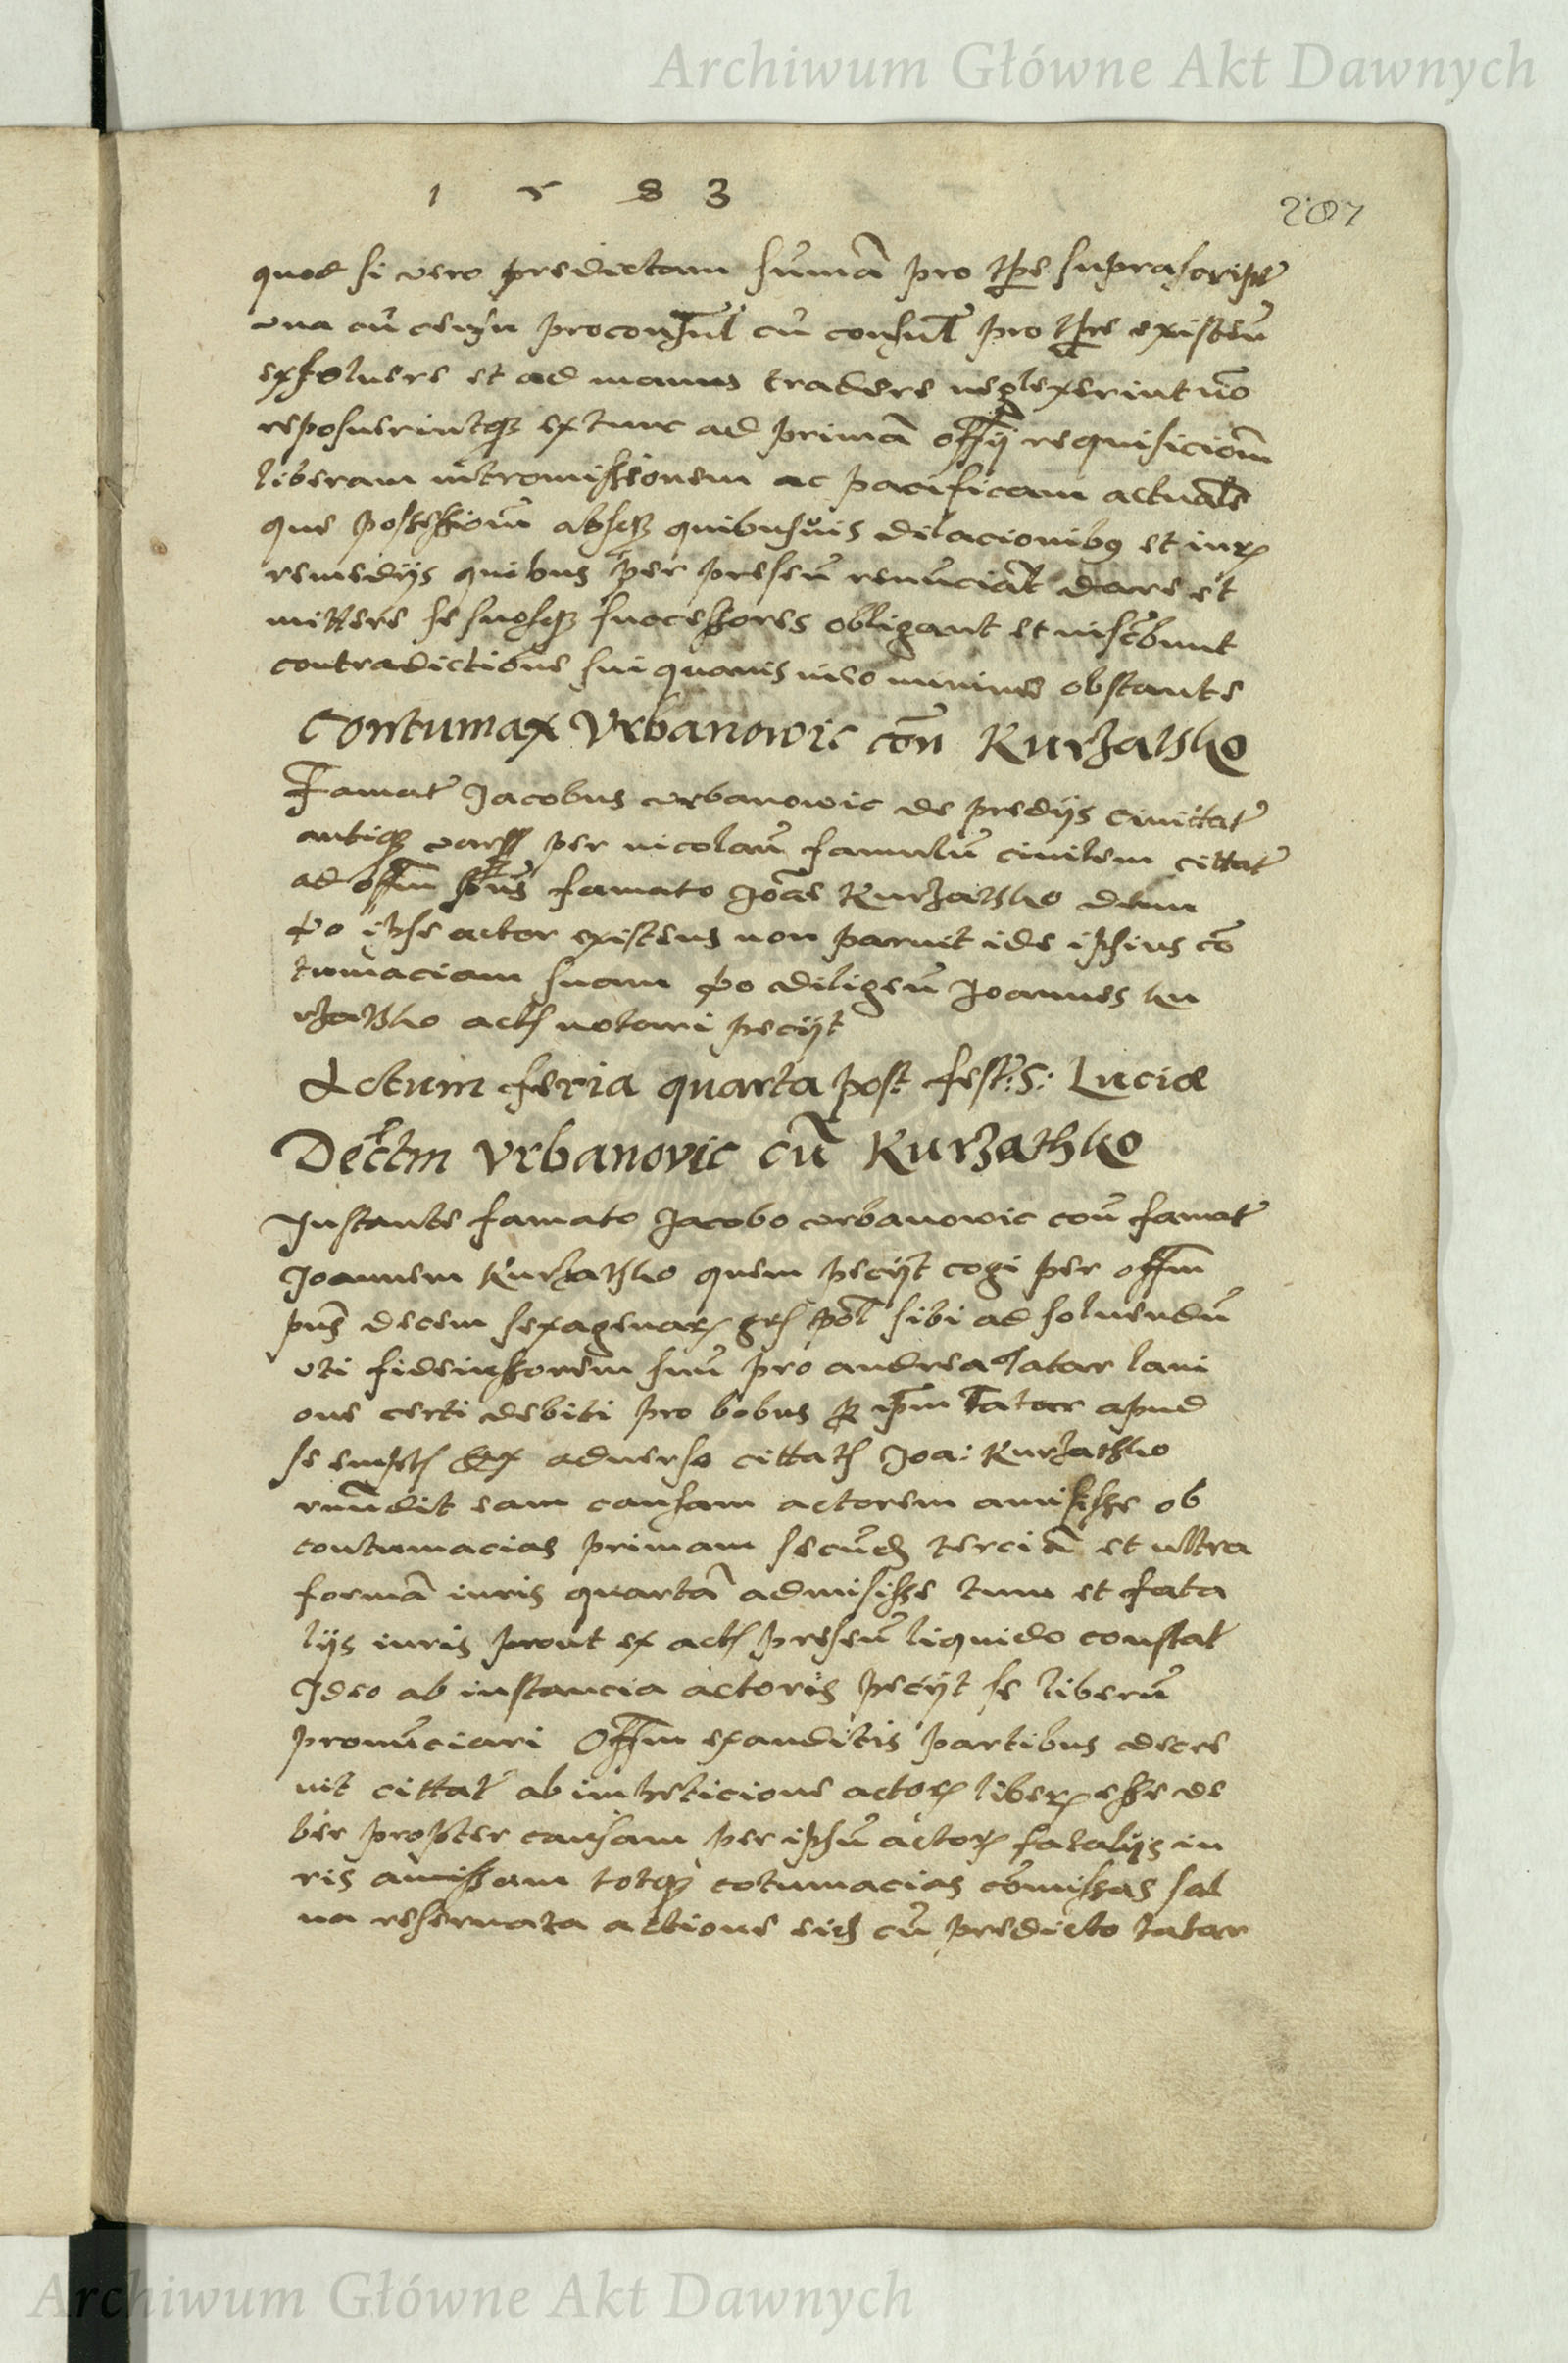 Archiwum Główne Akt Dawnych
1 5 8 3
207
quod si vero predictam sumā pro tpe suprascript
una cū censu proconsul cū consul pro tpre existen̄
exsolvere et ad manus tradere neglexerint nō
reposuerintqȝ extunc ad primā offij requisicioēm
liberam intromissionem ac pacificam actuale
que possessionē absqȝ quibusvis dilacionibꝰ et iurꝭ
remedijs quibus per presen̄ renūciat dare et
mittere se suosqȝ successores obligant et
contradictione sui quavis obstante
Contumax Vrbanowic con̄ Kurzathko
Famat Jacobus vrbanowic de predijs Civitat
antiqȝ vars per nicolaū famulū civilem cittat
ad offm pns famato Joāe Kurzathko
ipse actor existens non paruit ide ipsius cō
tumaciam suam diligen̄ Joannes ku
rzathko act notari pecijt
Actum feria quarta post fest: S: Luciæ
Dectm Vrbanovic cū Kurzathko
Instante famato Jacobo vrbanowic con̄ famat
Joannem Kurzathko quem pecijt cogi per offm
pns decem sexagenarꝭ grs pol sibi ad solvendū
uti fideiussorem suū pro andrea Tatar lani
one certi debiti pro bobus ipm Tatar apud
se empt Ex adverso cittat Joa: Kurzathko
rnndit eam causam actorem amisisse ob
contumacias primam secūd terciā et ultra
formā iuris quartā admisisse tum et fata
lijs iuris prout ex act presen̄ liquido constat
Ideo ab instancia actoris pecijt se liberū
pronūciari Offm exauditis partibus decre
vit cittat ab impeticione actorꝭ liberꝭ esse de
ber propter causam per ipsū actorꝭ fatalijs iu
ris amissam totqȝ cotumacias cōmissas sal
va reservata actione eid cū predicto tatar
Archiwum Główne Akt Dawnych